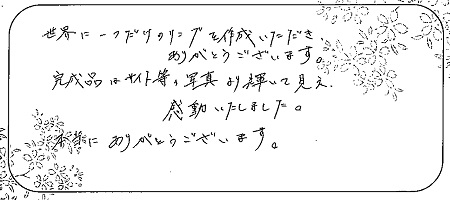 世界に一つだけのリングを作成いただき
ありがとうございます。
完成品はサイト等の写真より輝いて見え、
感動いたしました。
本当に ありがとうございます。